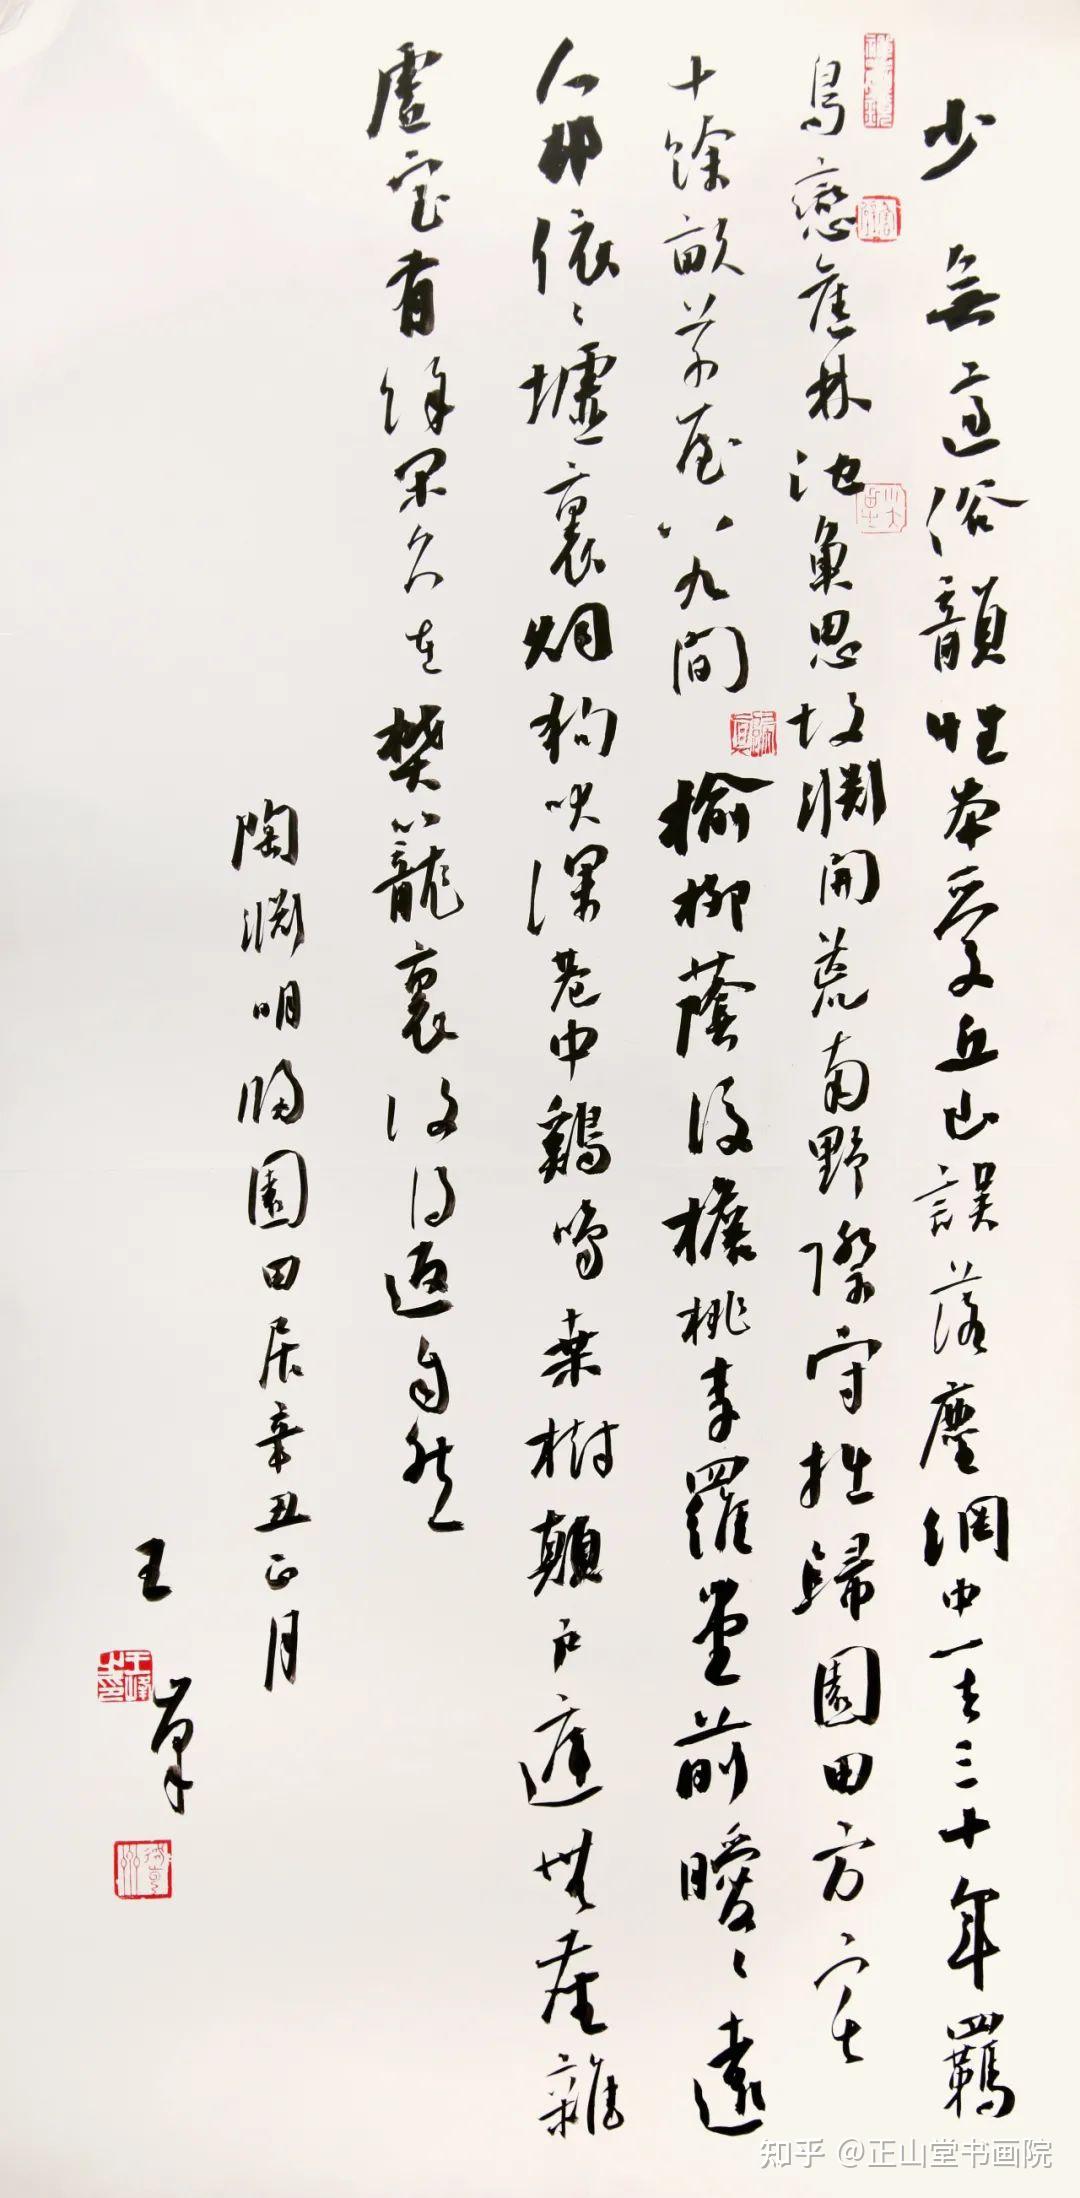 少無適俗韻性本愛丘山誤落塵網中一去三十年羈
鳥戀舊林池魚思故淵開荒南野際守拙歸園田方宅
十餘畝草屋八九間榆柳蔭後檐桃李羅堂前曖〻遠
人村依〻墟裏烟狗吠深巷中鷄鳴桑樹顛戶庭無塵雜
虛室有餘閑久在樊籠裏復得返自然
陶淵明歸園田居辛丑正月
王
知乎 @正山堂书画院